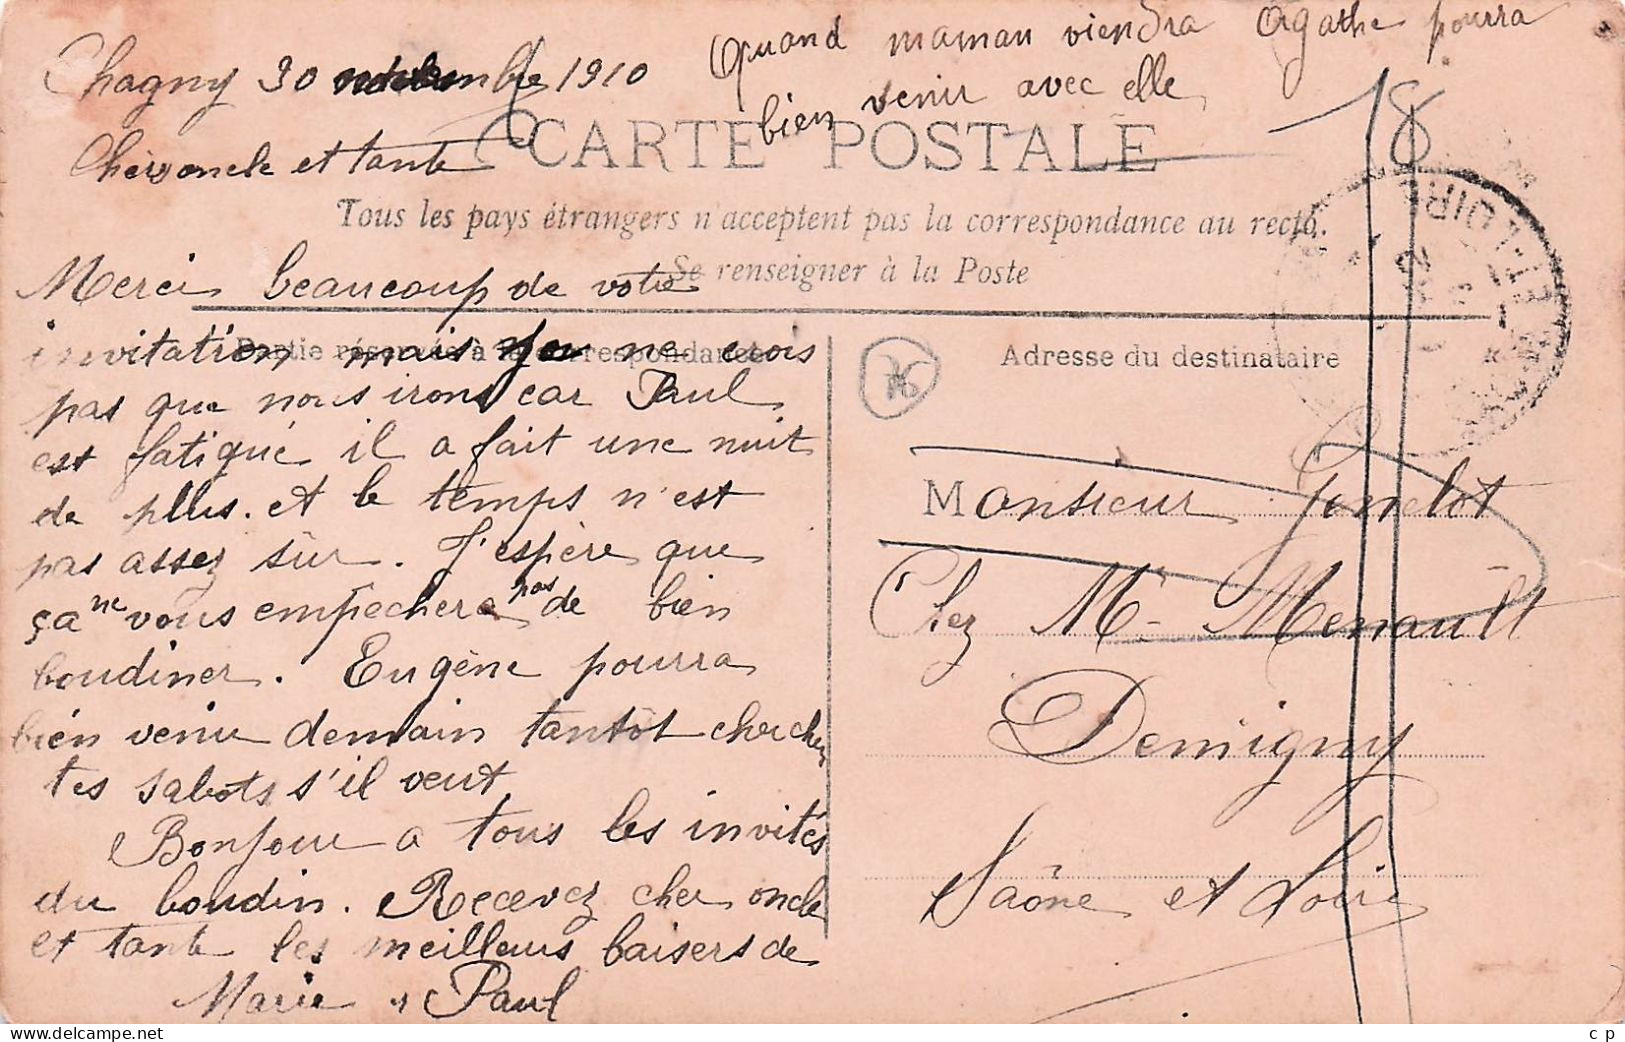 Chagny 30 1910
Quand maman viendra Agathe pourra
bien venir avec elle
18
CARTE POSTALE
Cher oncle et tante
Tous les pays étrangers n'acceptent pas la correspondance au recto.
Se renseigner à la Poste
Merci beaucoup de votre
Partie réservée à la correspondance
invitation mais je ne crois
pas que nous irons car Paul
est fatigué il a fait une nuit
de plus. et le temps n'est
pas assez sûr. J'espère que
ça ne vous empechera pas de bien
boudiner. Eugène pourra
bien venir demain tantôt chercher
tes sabots s'il veut
Bonjour a tous les invités
du boudin. Recevez cher oncle
et tante les meilleurs baisers de
Marie et Paul
Adresse du destinataire
Monsieur
Chez Mr Menault
Demigny
Saône et Loire
ET-LOIRE
c p